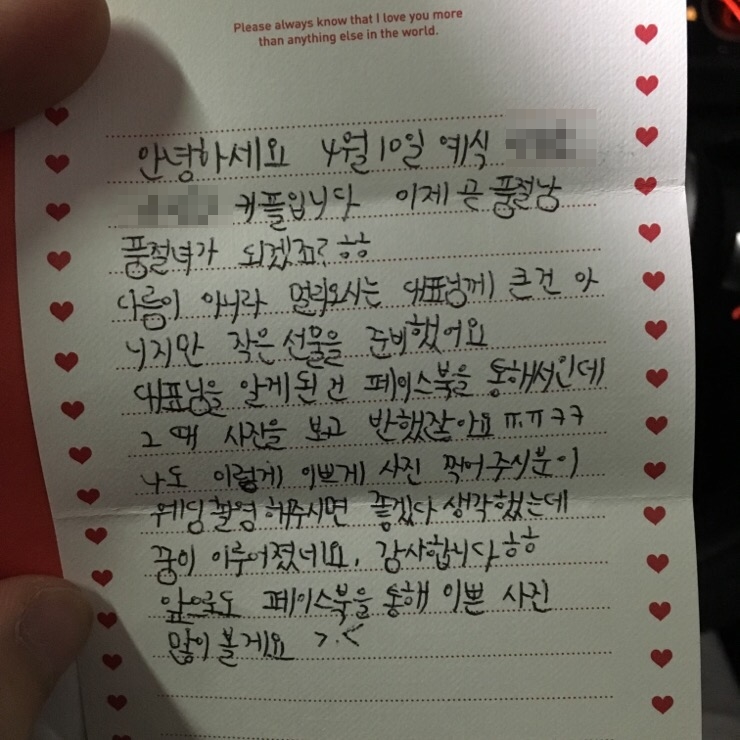 Please always know that I love you more
than anything else in the world.
안녕하세요 4월 10일 예식
커플입니다 이제 곧 품절남
품절녀가 되겠죠? ㅎㅎ
다름이 아니라 멀리오시는 대표님께 큰건 아
니지만 작은 선물을 준비했어요
대표님을 알게된 건 페이스북을 통해서인데
그때 사진을 보고 반했잖아요 ㅠ.ㅠ ㅋㅋ
나도 이렇게 이쁘게 사진 찍어주시분이
웨딩촬영해주시면 좋겠다 생각했는데
꿈이 이루어졌네요. 감사합니다 ㅎㅎ
앞으로도 페이스북을 통해 이쁜 사진
많이 볼게요 >.<